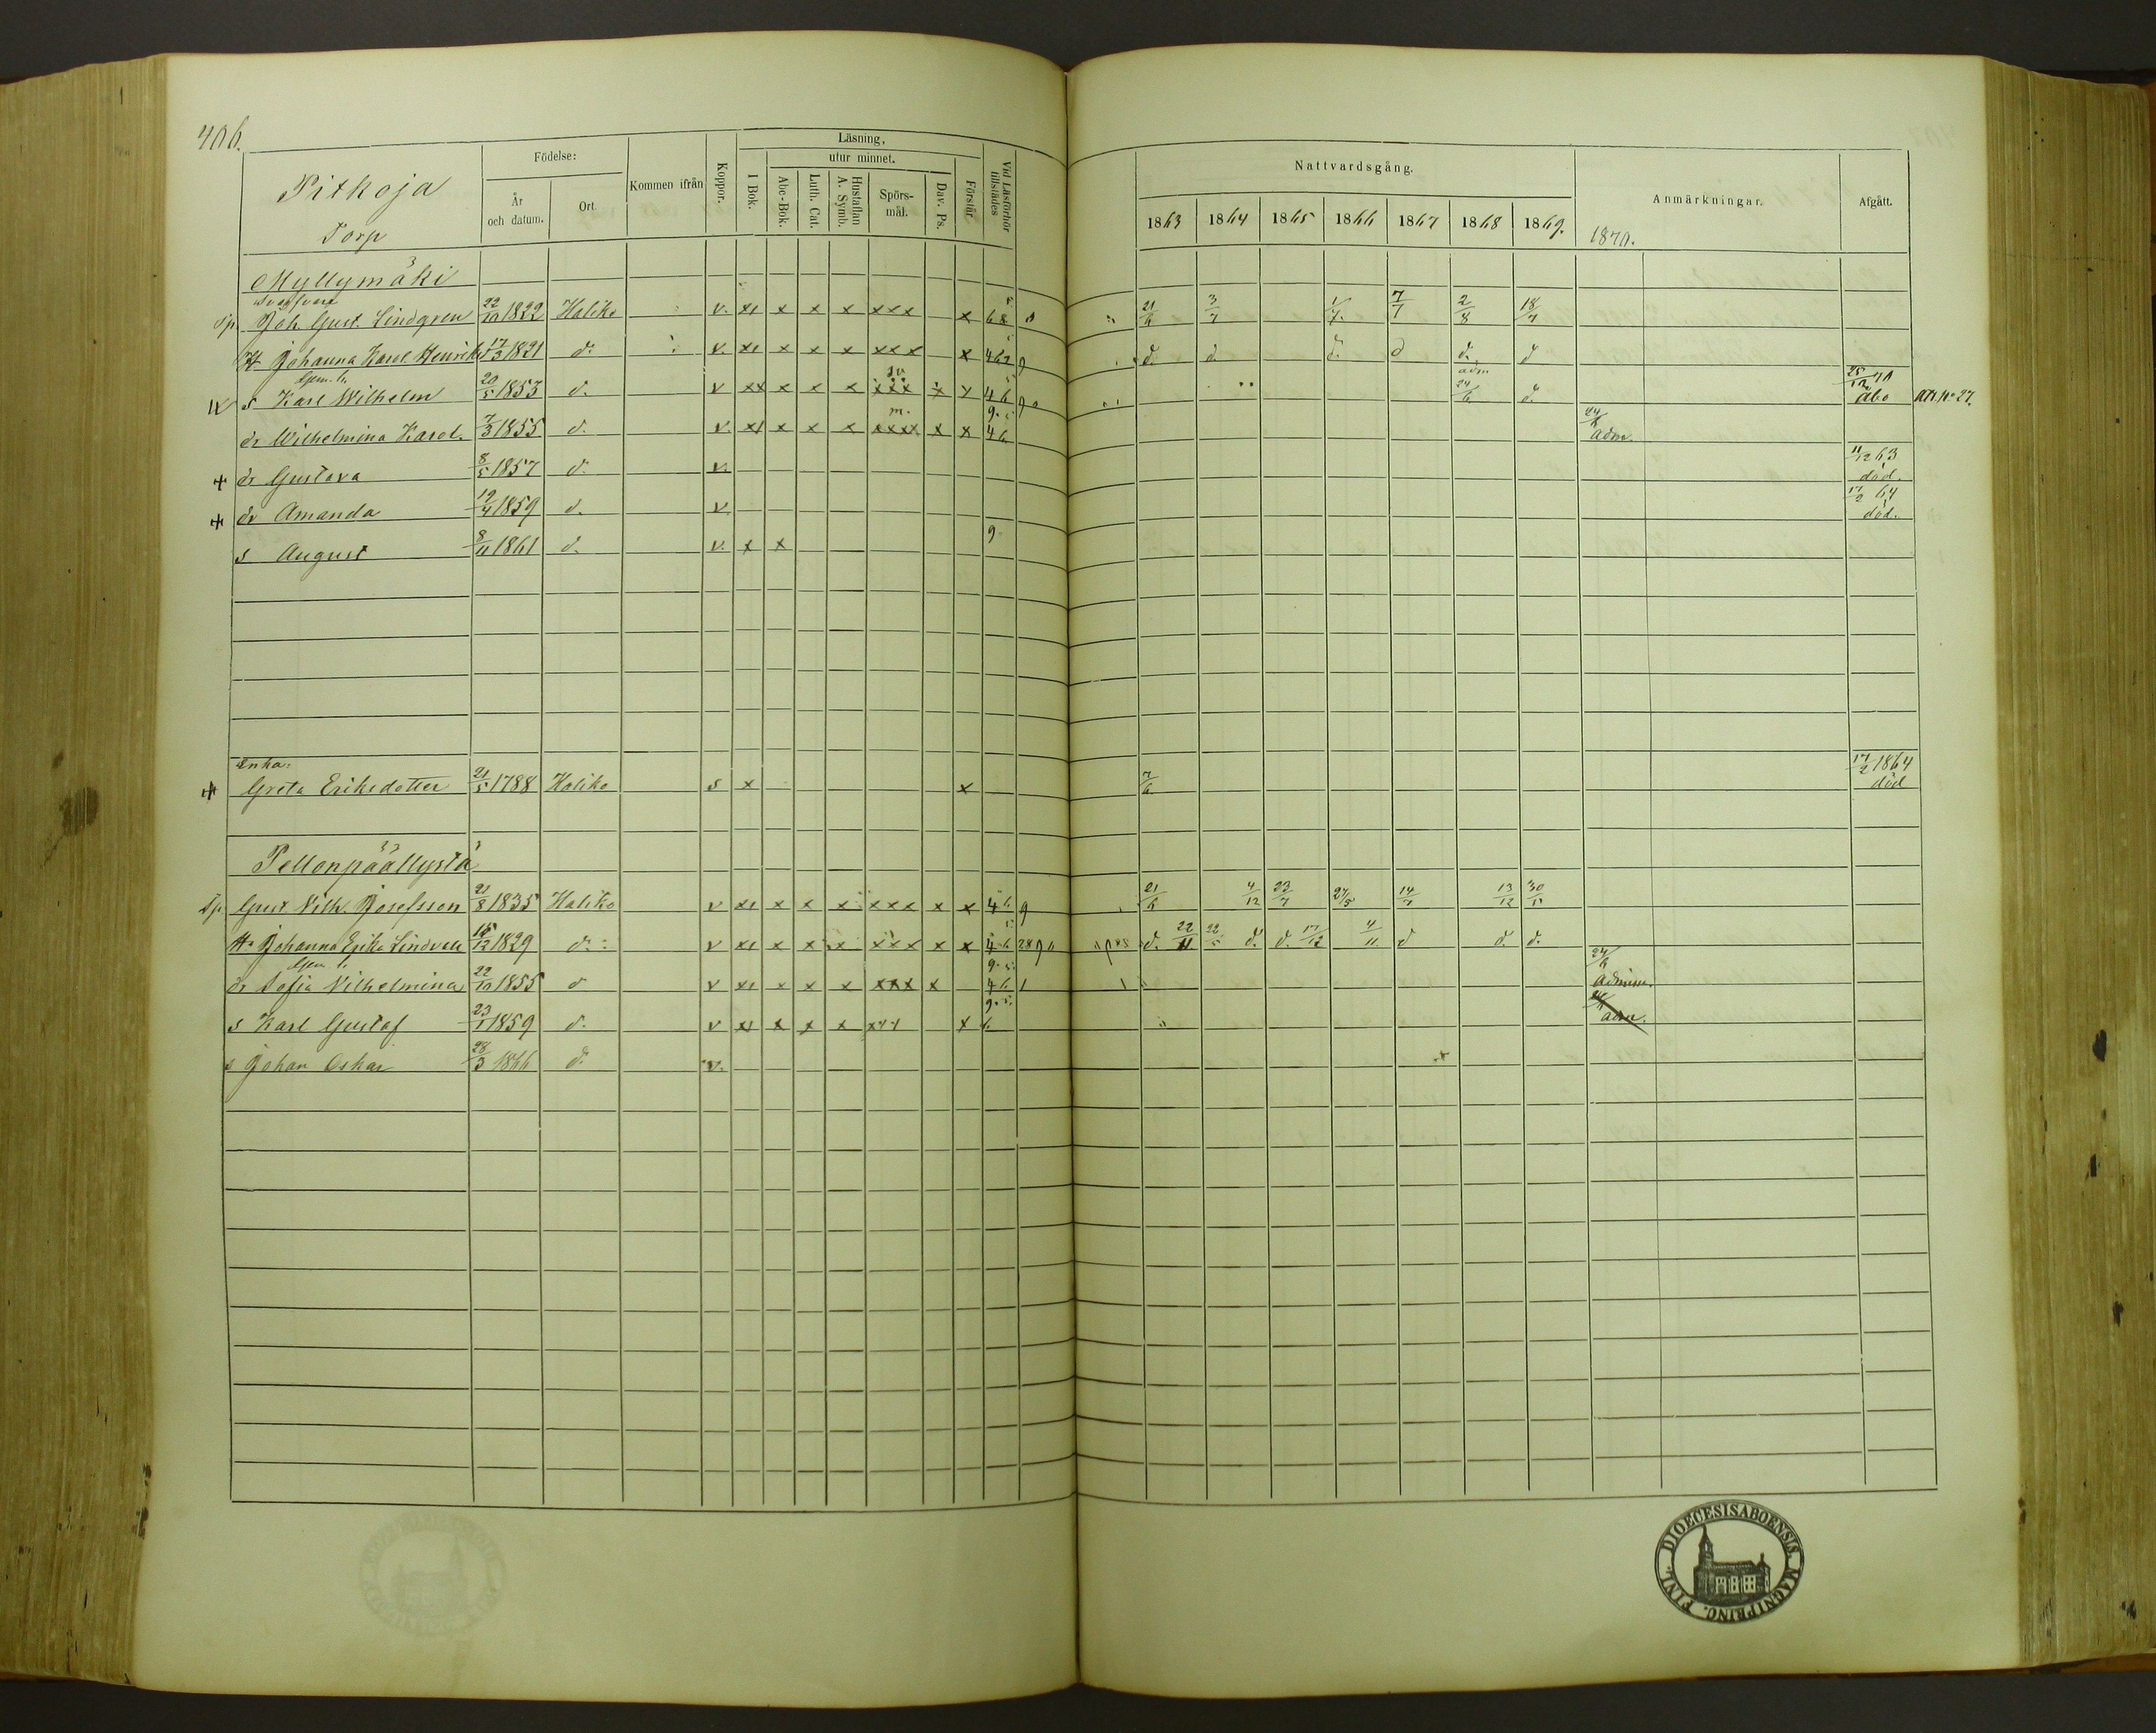 406.
Läsning,
Födelse:
utur minnet.
Pitkoja
Torp
År och datum.
Ort.
Kommen ifrån
Koppor.
I Bok.
Abc-Bok.
Luth. Cat.
Hustaflan A. Symb.
Spörs-mål.
Dav. Ps.
Förstår
Vid Läsförhör tillstädes
Nattvardsgång.
Anmärkningar.
Afgått.
1863 1864 1865 1866 1867 1868 1869. 1870.
Myllymäki
Joh. Gust. Lindgren 22/10 1822 Haliko v. x x x xxx x 68 21/6 3/7 1/7. 7/7 2/8 18/7
H. Johanna Karol. Henriksd 17/3 1821 d:o v. x x x xxx x d. d. d. d d. d
s Karl Wilhelm 20/5 1853 d. v xx x x x xxx x 46 adm 24/6 d. Åbo No 27.
dr Wilhelmina Karol. 7/3 1855 d. v. x x x xxxx x x 46 24/6 adm.
+ dr Gustava 8/5 1857 d. v. 11/12 63 död.
+ dr Amanda 19/4 1859 d. v. 17/2 64 död.
s August 8/11 1861 d. v. x x 9
Enka:
+ Greta Eriksdotter 21/5 1788 Haliko s x x 7/6 17/2 1864 död
Pellonpäällystä
Gust Vilh. Josefsson 21/8 1835 Haliko v x x x xxx x x 46 9 21/6 4/12 23/7 27/5 14/7 13/12 30/5
H. Johanna Erika Lindvall 15/12 1829 d:o v x x x xxx x x 46 d. 22/11 22/5 d. d. 17/12 4/11 d d. d.
dr Sofia Vilhelmina 22/10 1855 d v x x x xxx x 46 24/6 admiss.
s Karl Gustaf 23/1 1859 d. v x x x x 6 adm.
s Johan Oskar 28/3 1866 d. v.
DIOECESIS ABOENSIS. MAGNI PRINC. FINL.